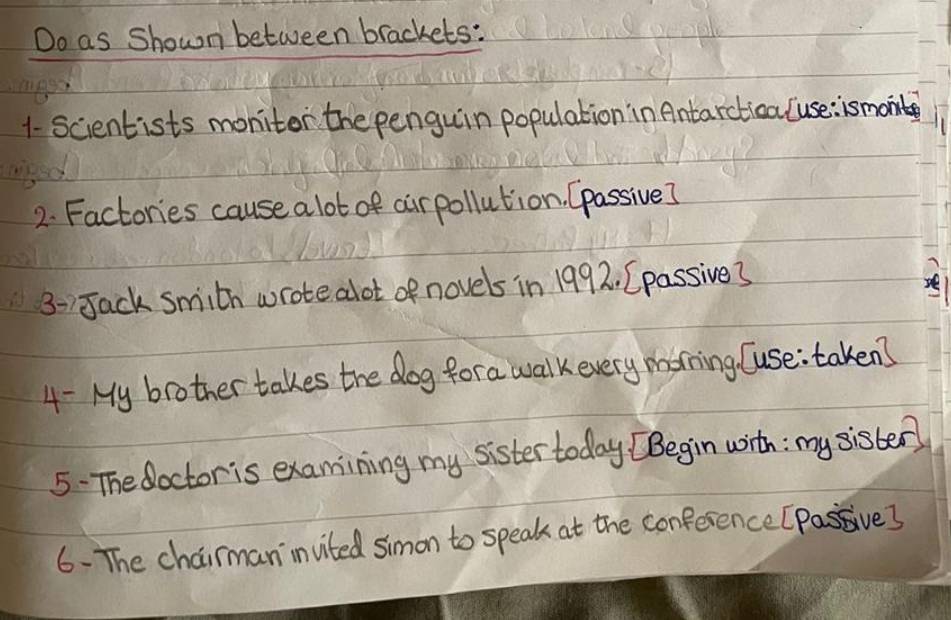 Do as Shown between brackets:
1- Scientists monitor the penguin population in Antarctica [use: is monito]
2- Factories cause a lot of air pollution. [passive]
3- Jack Smith wrote a lot of novels in 1992. [passive]
4- My brother takes the dog for a walk every morning. [use: taken]
5- The doctor is examining my sister today. [Begin with: my sister]
6- The chairman invited simon to speak at the conference [Passive]